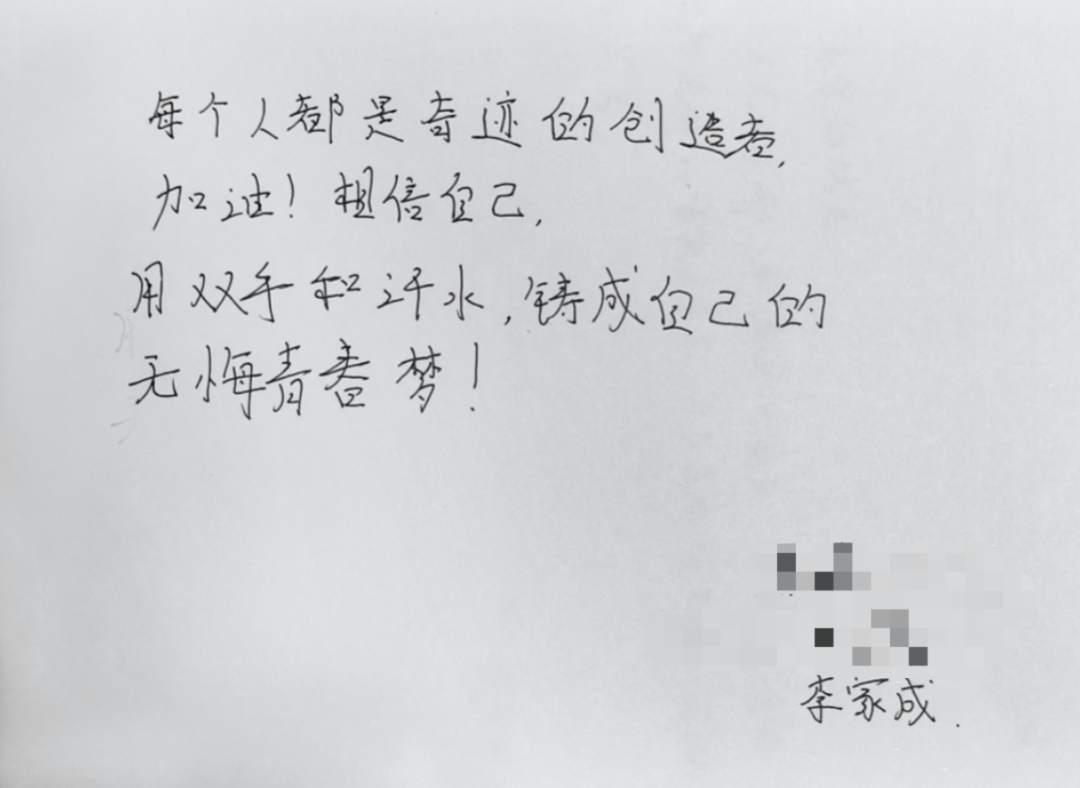 每个人都是奇迹的创造者,
加油！相信自己,
用双手和汗水,铸成自己的
无悔青春梦！
李家成.